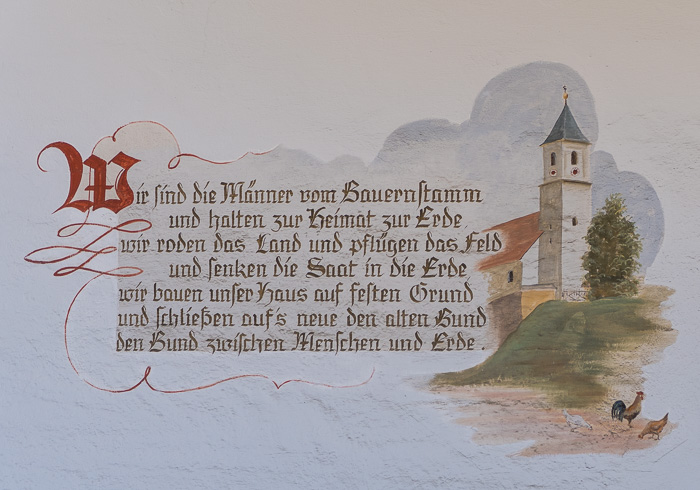 Wir sind die Männer vom Bauernstamm
und halten zur Heimat zur Erde
wir roden das Land und pflügen das Feld
und senken die Saat in die Erde
wir bauen unser Haus auf festen Grund
und schließen auf's neue den alten Bund
den Bund zwischen Menschen und Erde.